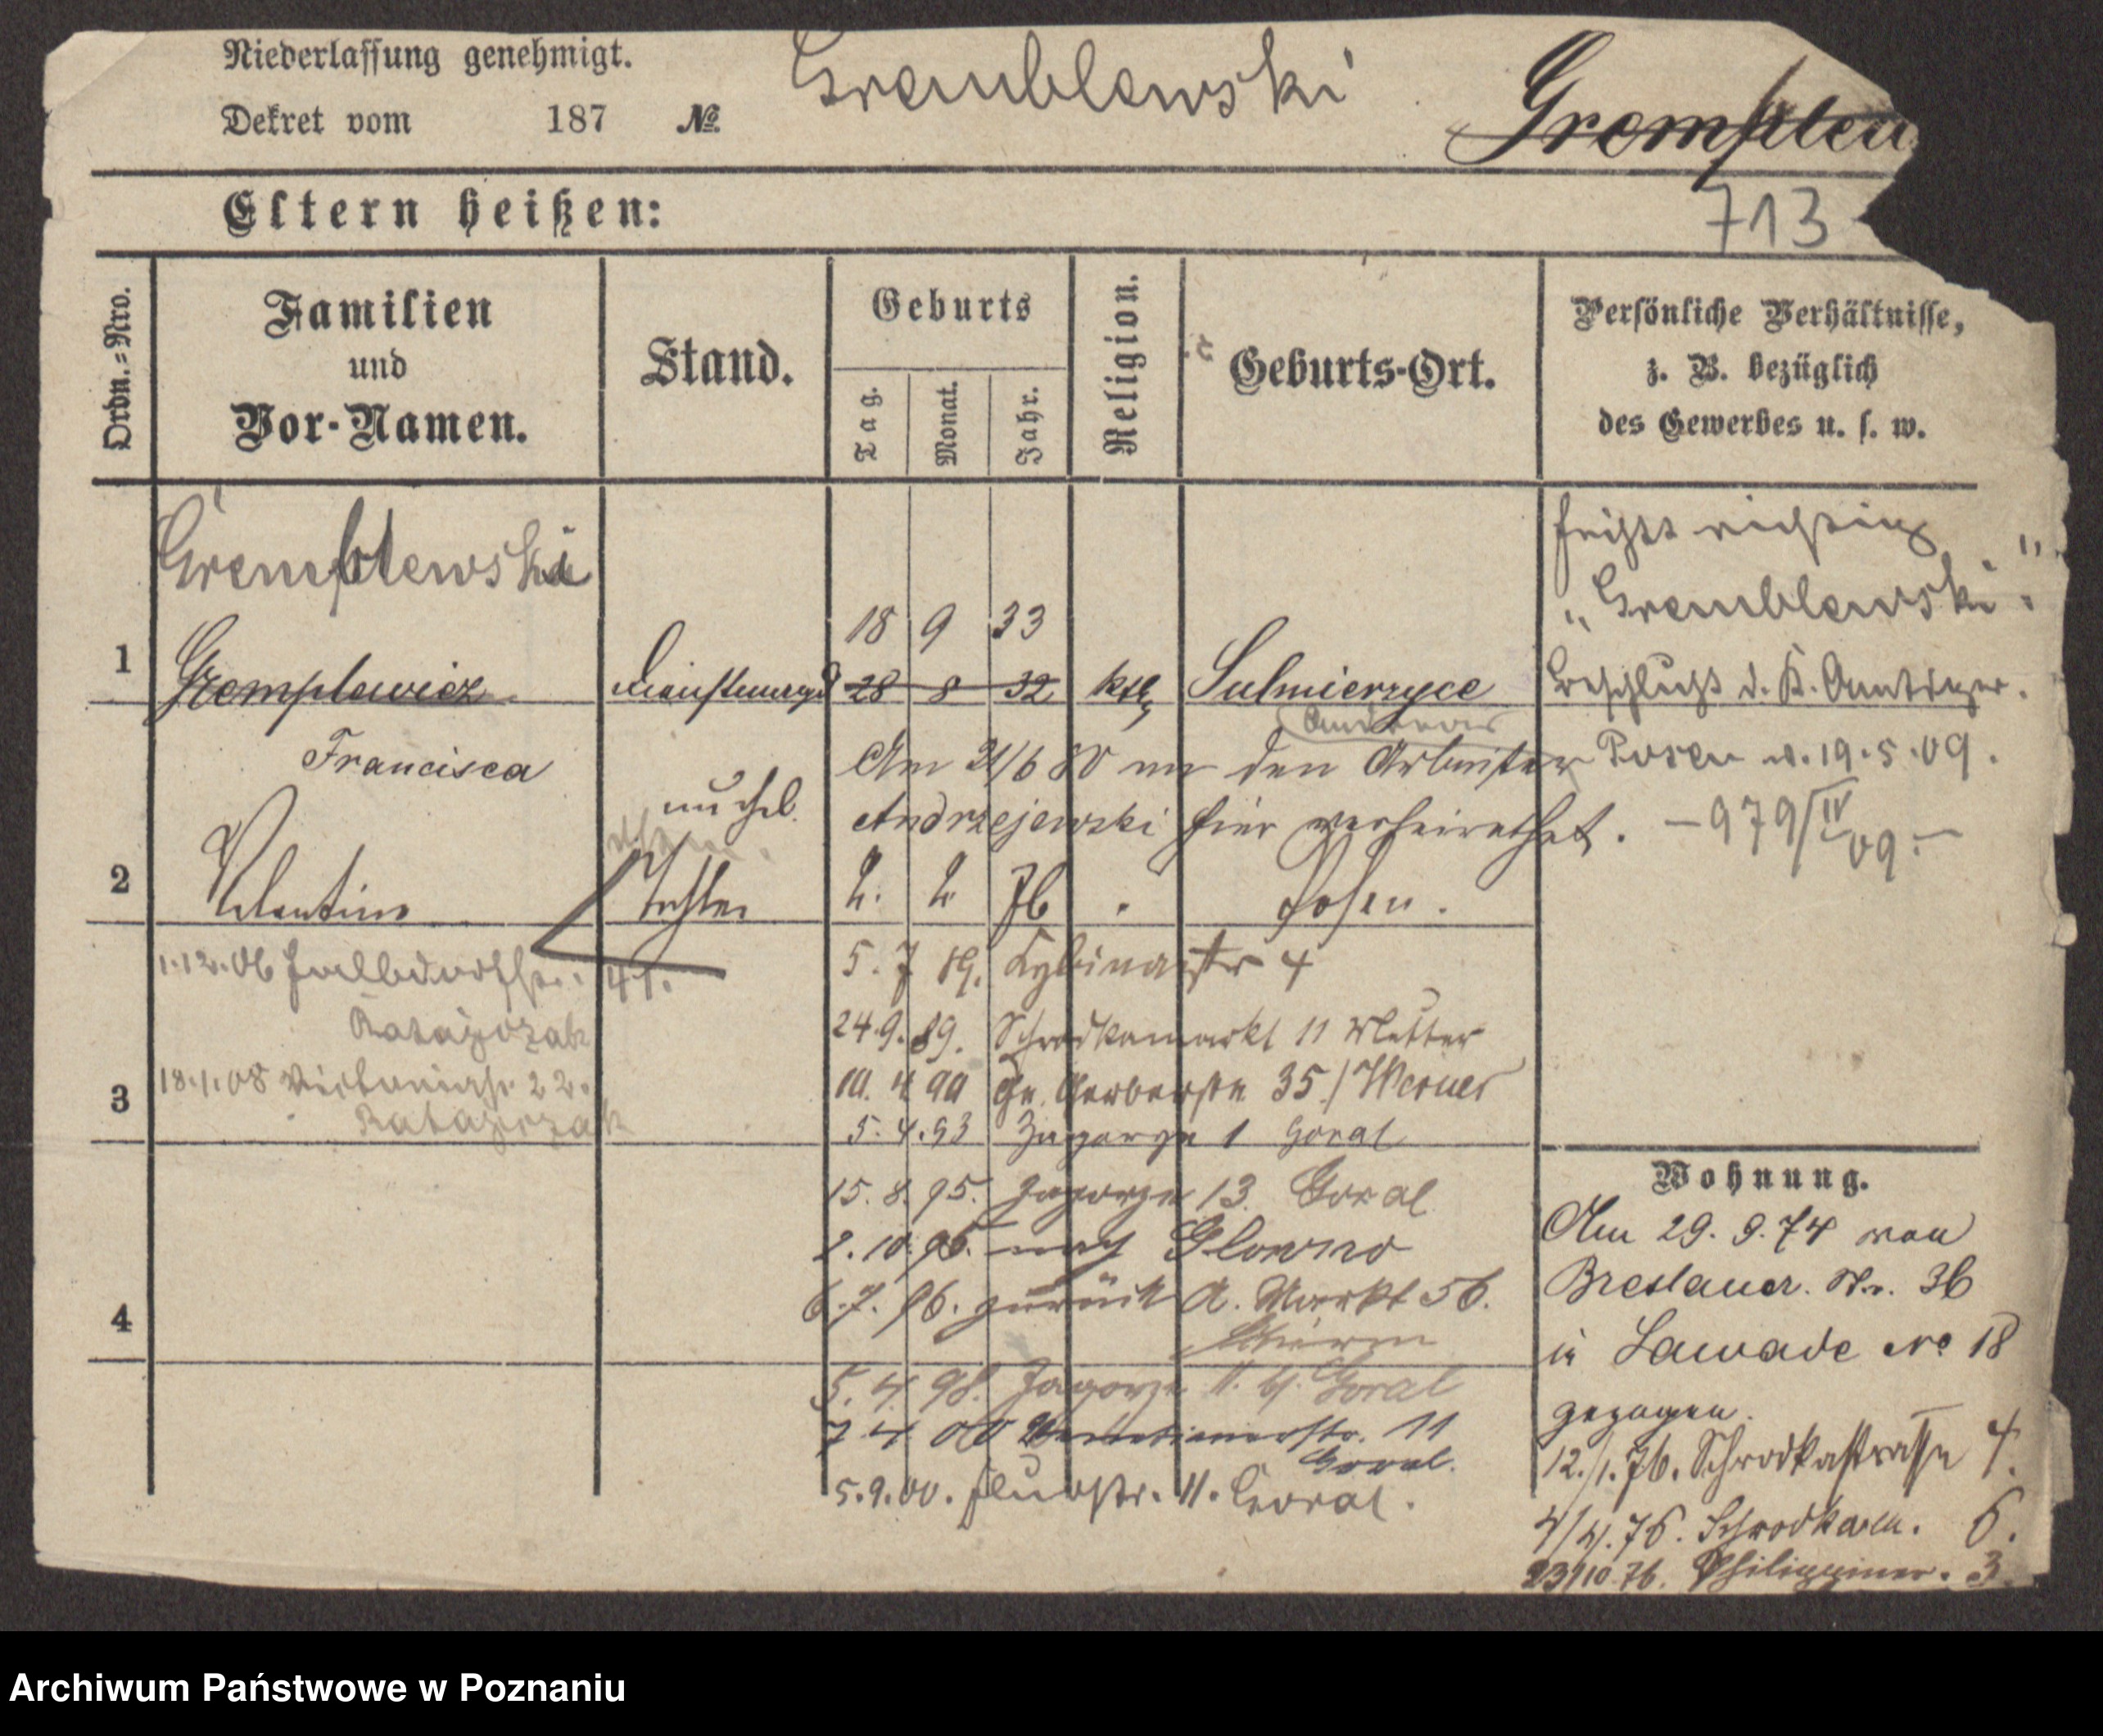 Niederlassung genehmigt.
Dekret vom 187 №
Gremblewski
Gremplew
713
Eltern heißen:
Ordn.=Nro.
Familien
und
Vor-Namen.
Stand.
Geburts
Tag.
Monat.
Jahr.
Religion.
Geburts-Ort.
Persönliche Verhältnisse,
z. B. bezüglich
des Gewerbes u. s. w.
Gremplewska
18 9 33
1 Gremplewicz 28 8 32 kth Sulmierzyce
Francisca
heißt richtig
"Gremblewski"
Beschluß d. K. Amtsger.
Posen v. 19.5.09.
-979/IV 09.-
Am 21/6 80 mit den Arbeiter
Andrzejewski hier verheirathet.
unehel.
2 Valentine Tochter 2. 2 76 " Posen.
1.12.06 41.
Ratajczak
18.1.08 Victoriastr. 22.
Ratajczak
5. 7 89. Cybinastr 4
24.9.89. Schrodkamarkt 11 Mutter
10. 4 90 Gr. Gerberstr 35/ Werner
3
5. 4.93 Zagorze 1 Goral
15. 8. 95. Zagorze 13 Goral
2.10.95. nach Glowno
6.7.96. zurück A. Markt 56.
4
5. 4. 98. Zagorze 11. b/. Goral
7 4 00 Venetianerstr. 11
Goral.
5.9.00. 11. Goral.
Wohnung.
Am 29. 9. 74 von
Breslauer. Str. 36
in Zawade No 18
gezogen.
12./1.76. Schrodkastrasse 4.
4/4.76. Schrodkam. 6.
23/10 76. Philippiner. 3.
Archiwum Państwowe w Poznaniu